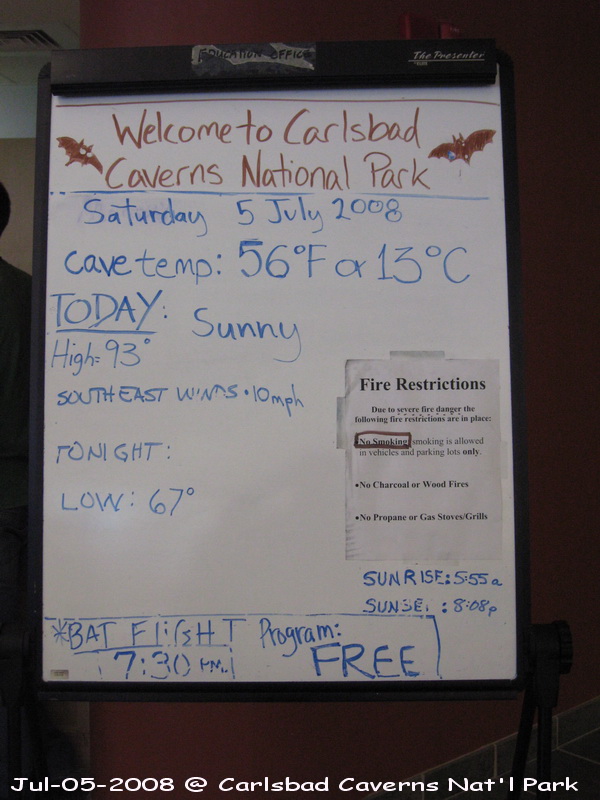 EDUCATION OFFICE
The Presenter
Welcome to Carlsbad
Caverns National Park
Saturday 5 July 2008
Cave temp: 56°F or 13°C
TODAY: Sunny
High= 93°
SOUTHEAST WINDS • 10mph
TONIGHT:
LOW: 67°
Fire Restrictions
Due to severe fire danger the
following fire restrictions are in place:
•No Smoking; smoking is allowed
in vehicles and parking lots only.
•No Charcoal or Wood Fires
•No Propane or Gas Stoves/Grills
SUNRISE: 5:55a
SUNSE : 8:08p
*BAT FlIGHT Program:
7:30 PM. FREE
Jul-05-2008 @ Carlsbad Caverns Nat'l Park